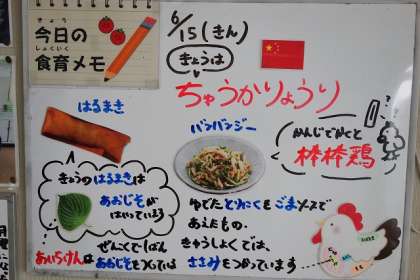 きょう
今日の
しょくいく
食育メモ
6/15(きん)
きょうは
ちゅうかりょうり
はるまき
バンバンジー
かんじでかくと
棒棒鶏
きょうのはるまきは
あおじそが
はいっている
ゆでたとりにくもごまソースで
あえたもの。
きゅうしょくでは、
ささみをつかっています
あいちけんは
ぜんこくでいちばん
あおじそをつくっている